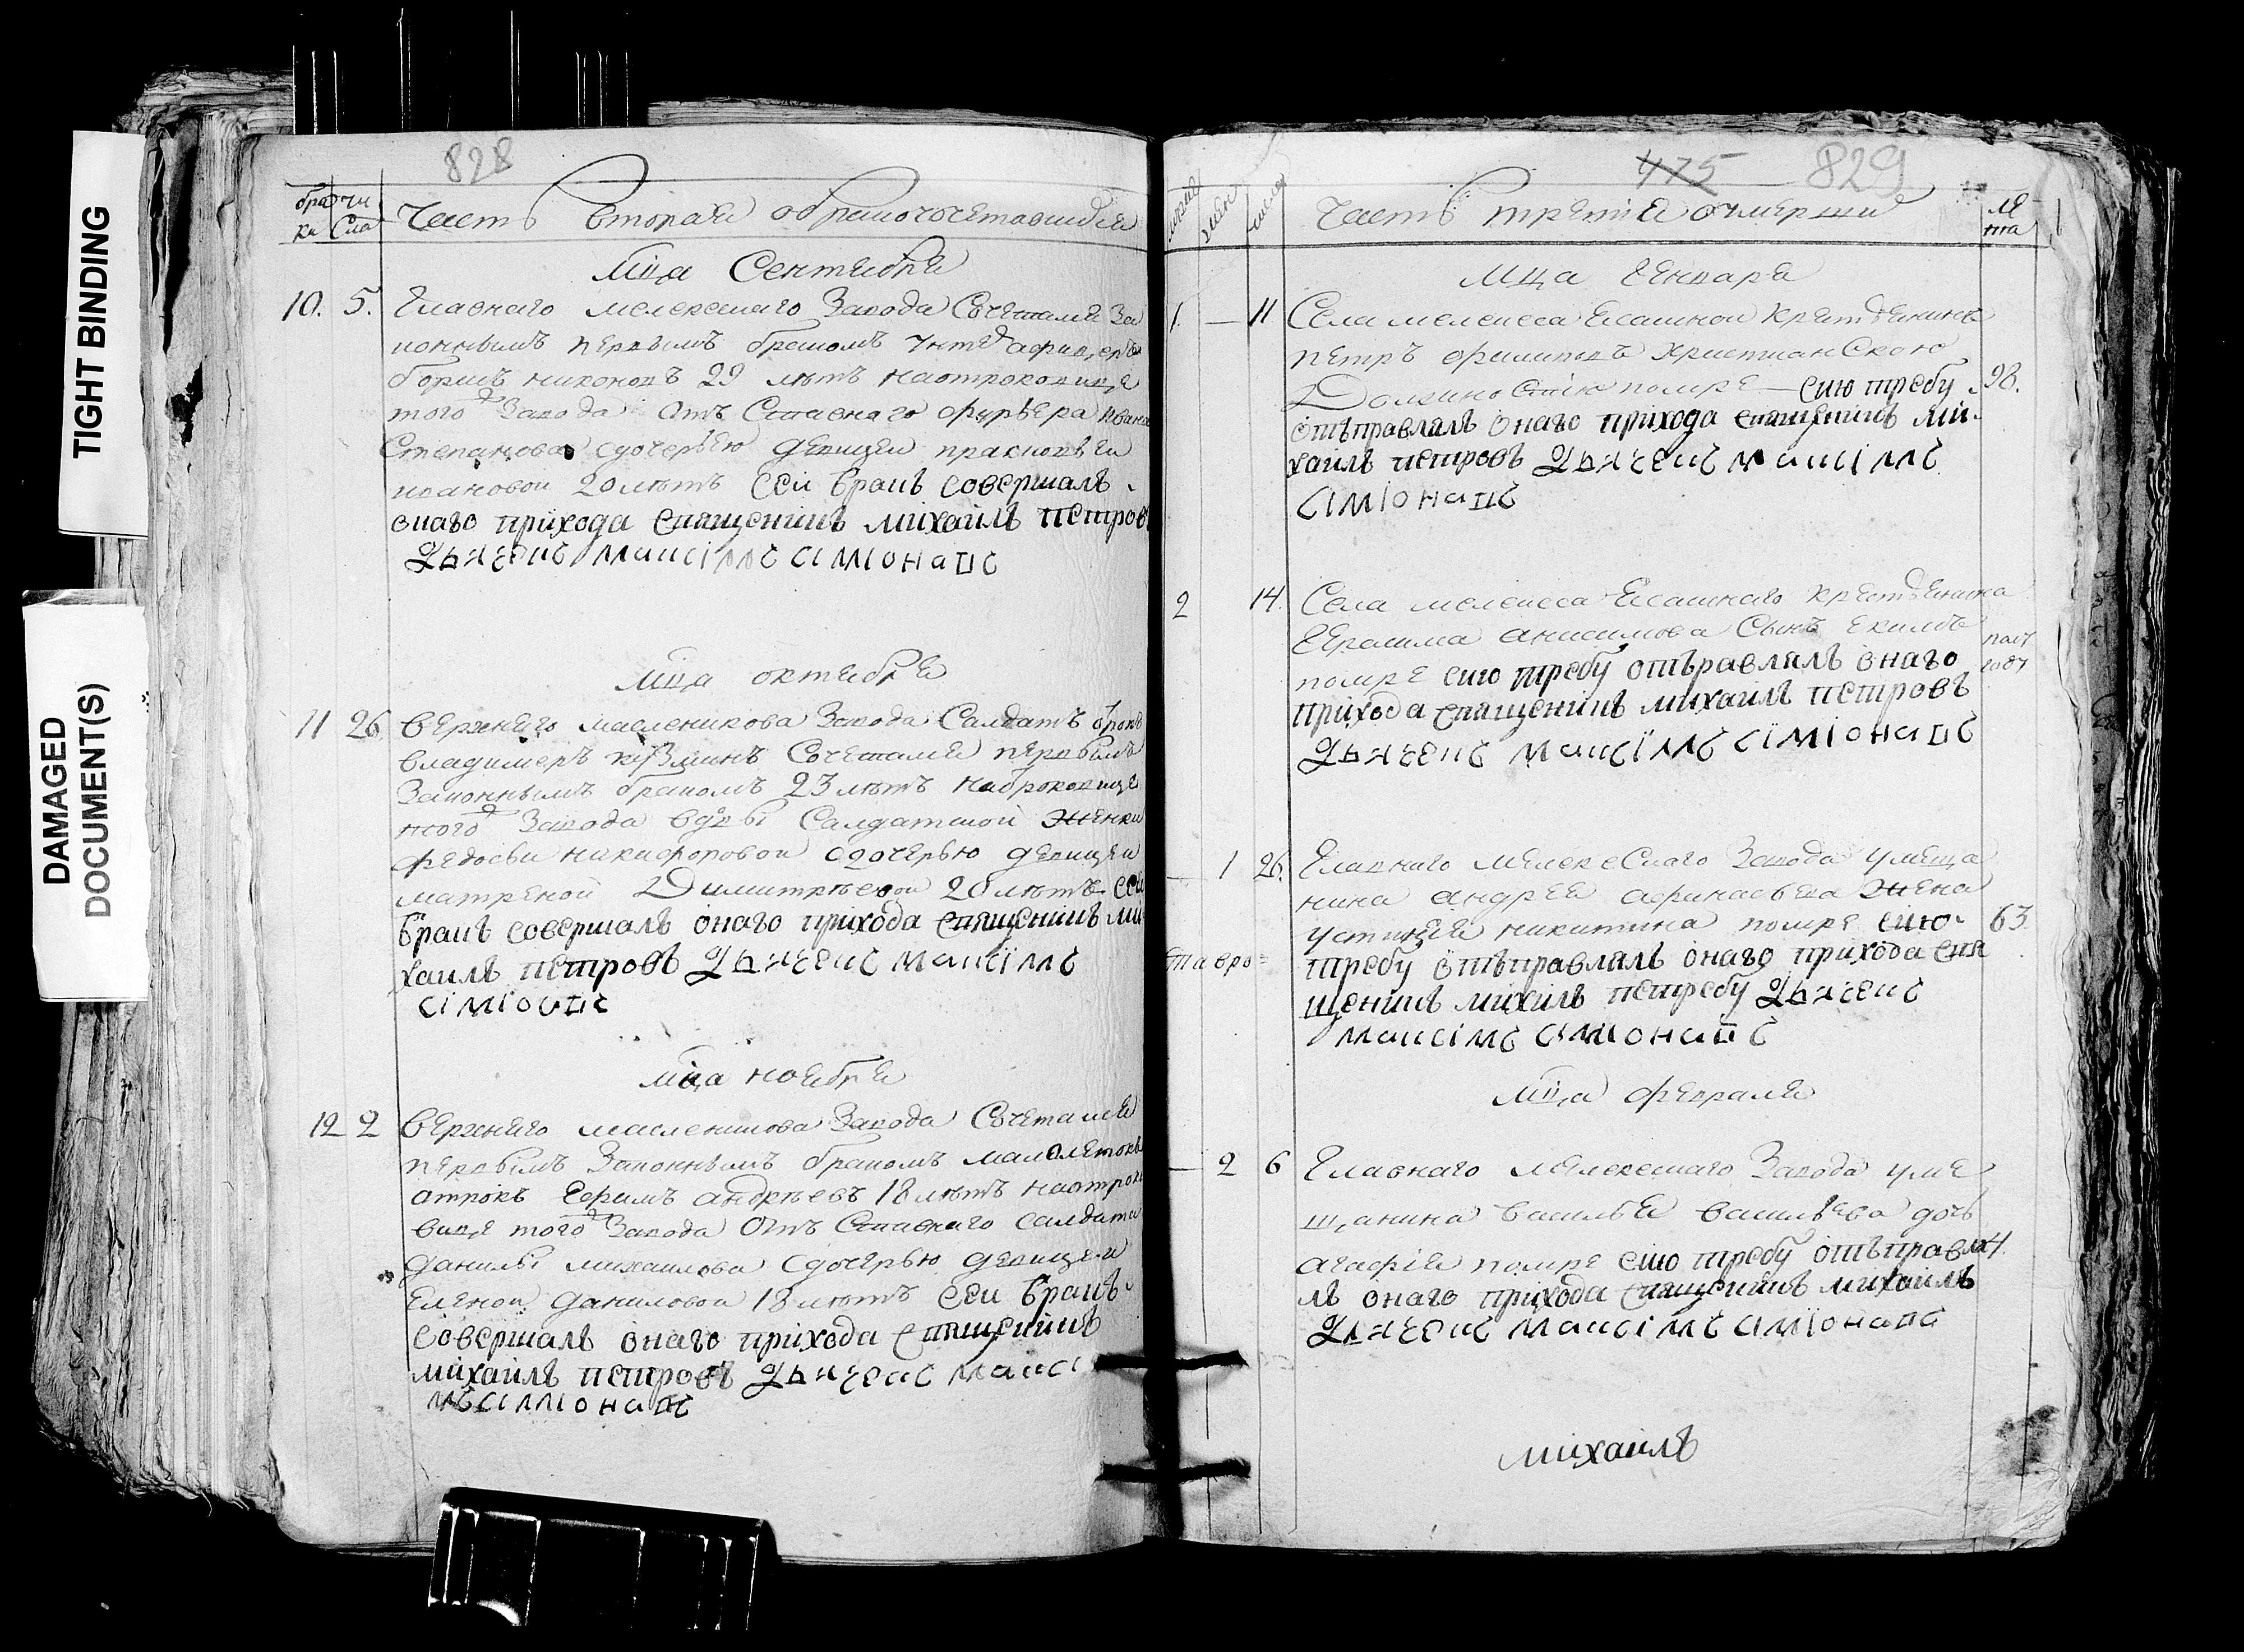 TIGHT BINDING
DAMAGED
DOCUMENT(S)
828
бра чи
ки сла
Часть вторая о бракосочетавшихся
Мца Сентября
10. 5. Главнаго мелекескаго Завода Сочетался За
коннымъ первымъ бракомъ унтеръ афицеръ
борисъ никоновъ 29 летъ на отроковице
того Завода отъ Ставнаго фурьера ивана
Степанова здочерью девицеи прасковьеи
ивановой 20 летъ сеи бракъ совершалъ
онаго прихода священникъ михаилъ петровъ
максімъ сімїонавъ
Мца октября
11 26 верхняго масленикова Завода Салдатъ отрокъ
владимеръ кузминъ Сочетался первымъ
Законнымъ бракомъ 23 летъ на отроковице
того Завода вдовы Салдатской Женки
федосьи никифоровой здочерью девицеи
матреной Димитриевой 20 летъ сеи
бракъ совершалъ онаго прихода священникъ ми
хаилъ петровъ максїмъ
мца ноября
12 2 верхняго масленикова Завода Сочетался
первымъ Законнымъ бракомъ малолетокъ
отрокъ ефимъ андреевъ 18 летъ на отроко
вице того Завода отъ Ставнаго салдата
данилы михаилова здочерью девицеи
еленой даниловой 18 летъ сеи бракъ
совершалъ онаго прихода священникъ
михаилъ петровъ макси
мъ сімїонавъ
475 829
Часть третия о умершихъ ле
та
Мца генваря
1. — 11 Села мелекеса ясашной крестьянинъ
петръ филиповъ христианскою
Должностию помре — сию требу 98.
отъправлялъ онаго прихода священникъ ми
хаилъ петровъ максїмъ
сімїонавъ
2 14. Села мелекеса ясашнаго крестьянина
герасима анисимова Сынъ екимъ
помре сию требу отъправлялъ онаго
прихода священникъ михаилъ петровъ
максїмъ сімїонавъ
— 1 26. Главнаго мелекескаго Завода умеща
нина андрея афанасьева Жена
устиния никитина помре сию 63.
требу отъправлялъ онаго прихода свя
щенникъ михаилъ
максімъ сімїонавъ
Мца февраля
— 2 6 Главнаго мелекескаго Завода уме
щанина василья васильева дочь
агафия помре сию требу отъправля 4.
лъ онаго прихода священникъ михаилъ
максімъ сімїонавъ
михаилъ